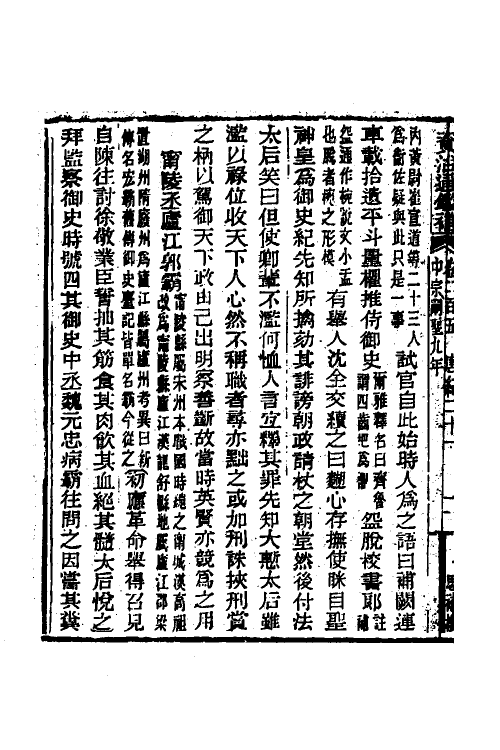 資治通鑑補 卷二百五 唐紀二十一
中宗嗣聖九年
內黃尉崔宣道等二十三人
爲衞佐疑與此只是一事
試官自此始時人爲之語曰補闕連
車載拾遺平斗量欋推侍御史
爾雅釋名曰齊魯
謂四齒杷爲欋
盌脫校書郞
註
盌通作椀說文小盂
也脫者椀之形模
有舉人沈全交續之曰麪心存撫使眯目聖
神皇爲御史紀先知所擒劾其誹謗朝政請杖之朝堂然後付法
太后笑曰但使卿輩不濫何恤人言宜釋其罪先知大慙太后雖
濫以祿位收天下人心然不稱職者尋亦黜之或加刑誅挾刑賞
之柄以駕御天下政由己出明察善斷故當時英賢亦競爲之用
甯陵丞廬江郭霸
甯陵縣屬宋州本戰國時魏之甯城漢高祖
改爲甯陵縣廬江漢龍舒縣地屬廬江郡梁
置湖州隋廢州爲廬江縣屬廬州考異曰新
傳名宏霸舊傳御史臺記皆單名霸今從之
初應革命舉得召見
自陳往討徐敬業臣誓抽其筋食其肉飲其血絕其髓太后悅之
拜監察御史時號四其御史中丞魏元忠病霸往問之因嘗其糞